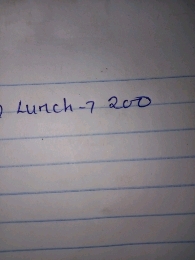 ) Lunch → 200